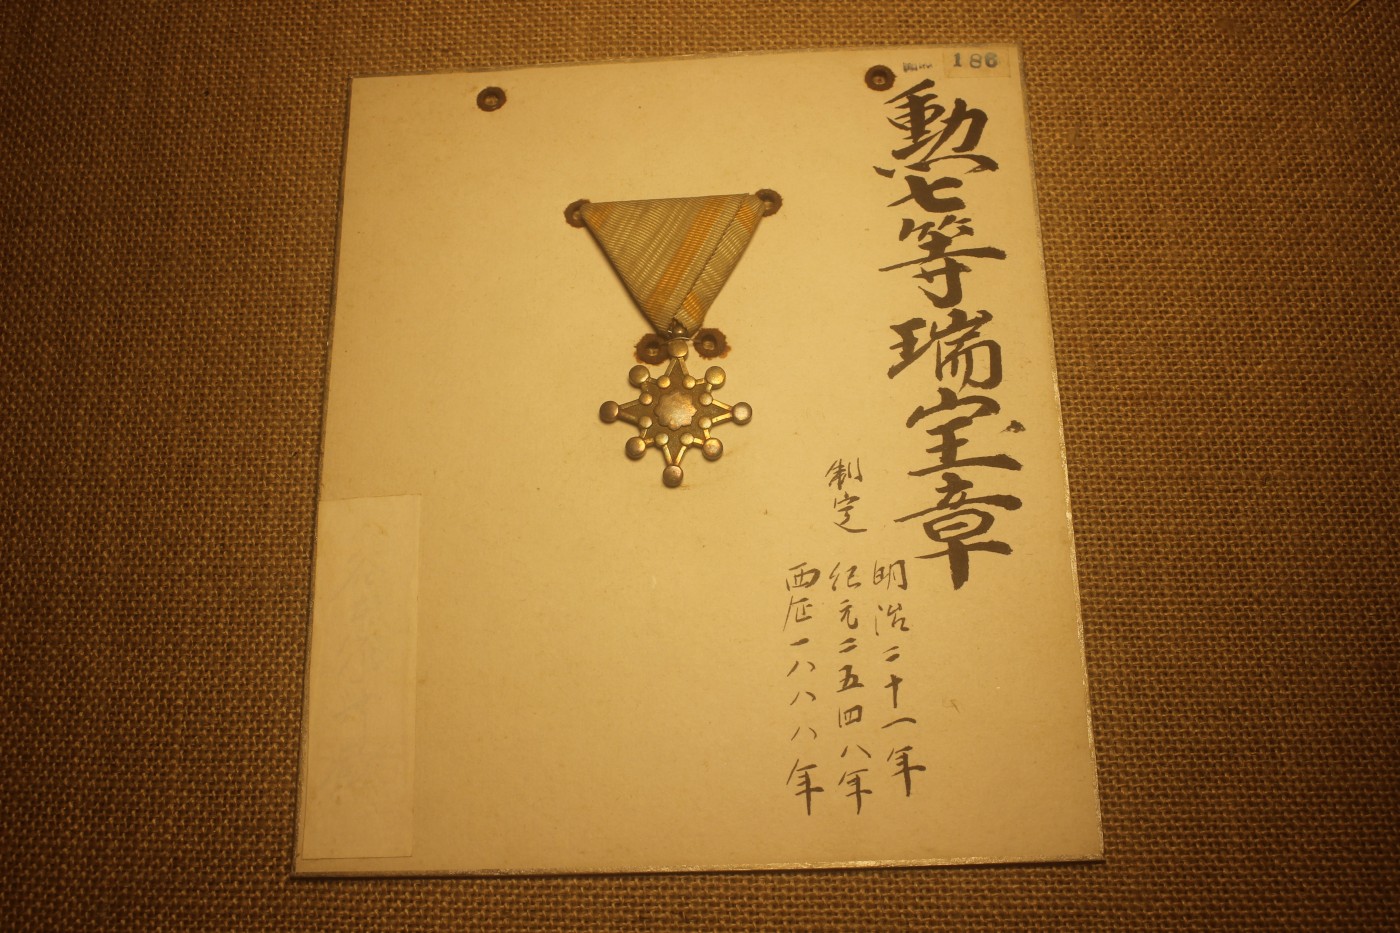 186
勲七等瑞宝章
制定
明治二十一年
紀元二五四八年
西厂一八八八年